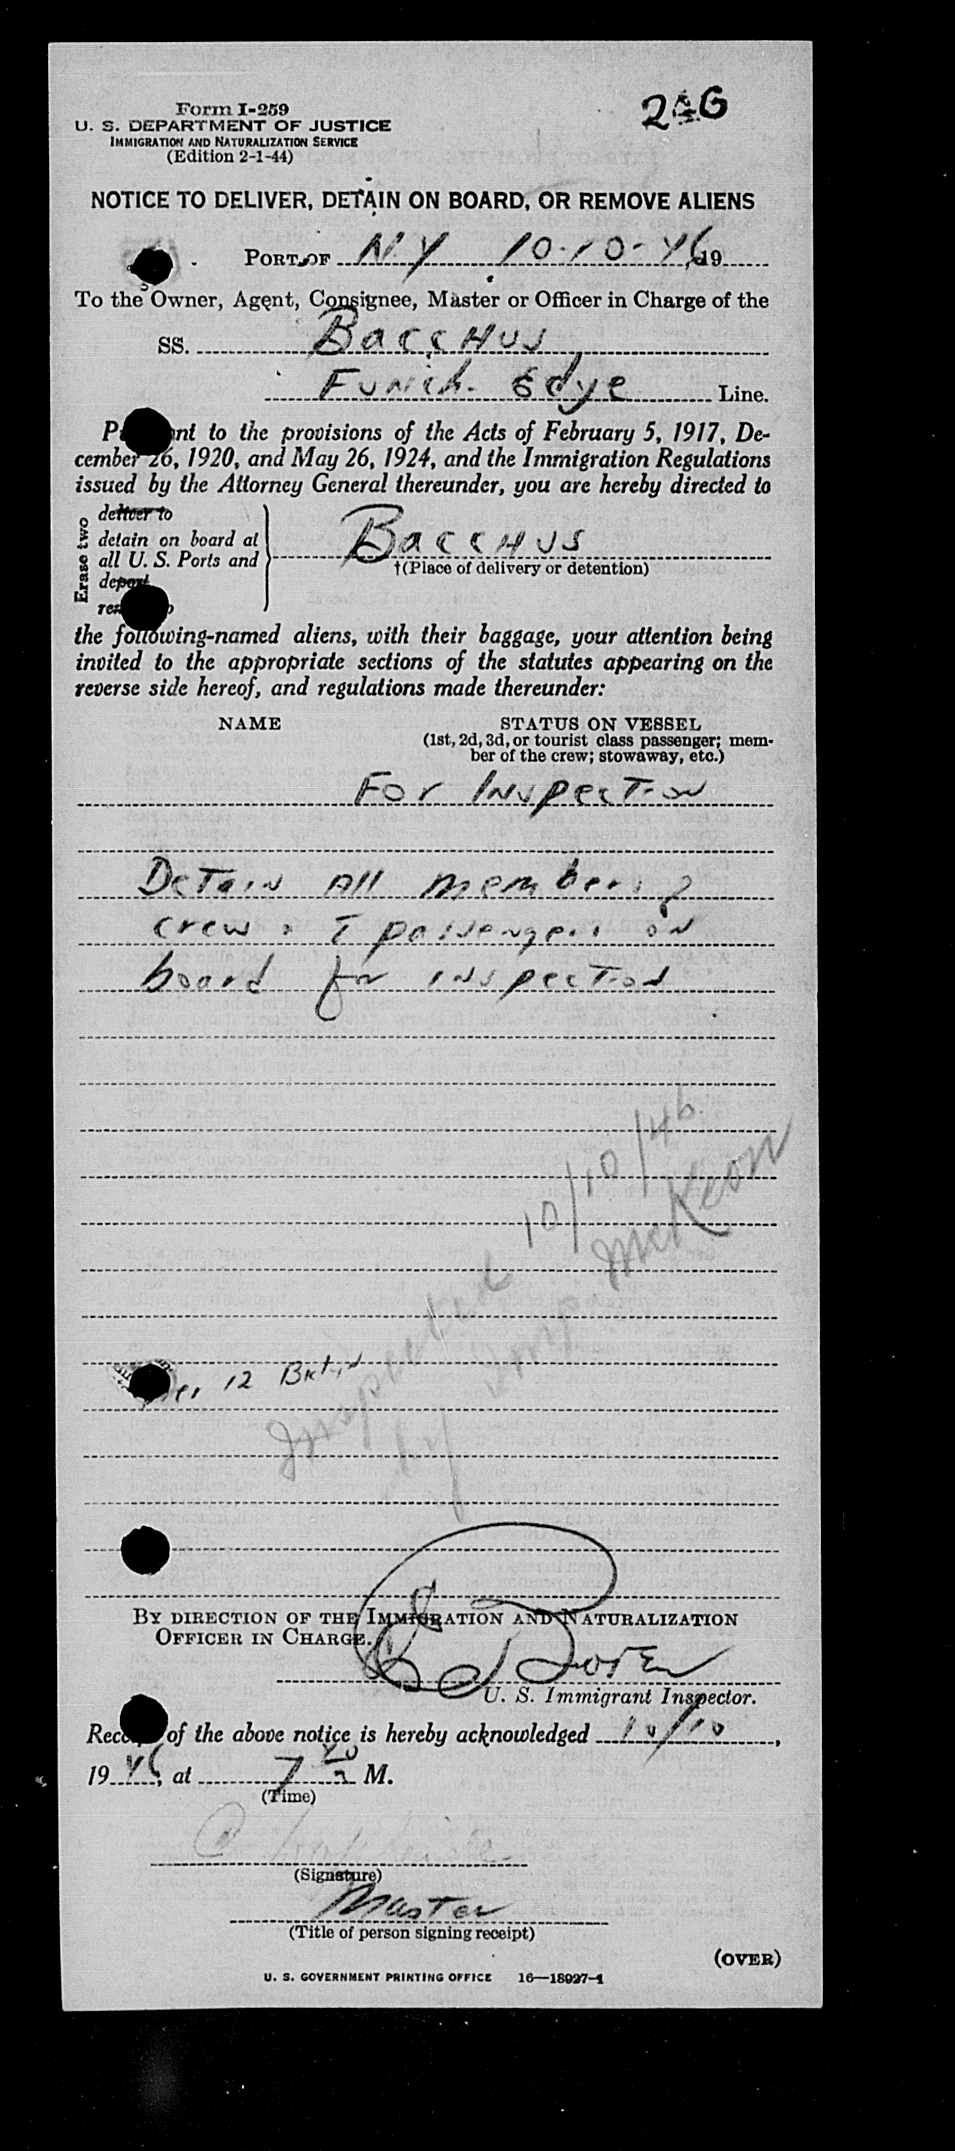 Form I-259
U. S. DEPARTMENT OF JUSTICE
IMMIGRATION AND NATURALIZATION SERVICE
(Edition 2-1-44)
NOTICE TO DELIVER, DETAIN ON BOARD, OR REMOVE ALIENS
PORT OF N.Y 10-10-46, 19
To the Owner, Agent, Consignee, Master or Officer in Charge of the
SS. Bacchus
Funch. Edye Line.
nt to the provisions of the Acts of February 5, 1917, De-
cember 26, 1920, and May 26, 1924, and the Immigration Regulations
issued by the Attorney General thereunder, you are hereby directed to
Erase two
deliver to
detain on board at
all U. S. Ports and
deport
Bacchus
†(Place of delivery or detention)
the following-named aliens, with their baggage, your attention being
invited to the appropriate sections of the statutes appearing on the
reverse side hereof, and regulations made thereunder:
NAME STATUS ON VESSEL
(1st, 2d, 3d, or tourist class passenger; mem-
ber of the crew; stowaway, etc.)
For Inspection
Detain All members of
crew & passengers on
board for inspection
Inspected 10/10/46
by Insp. McKeon
12 Bktn
BY DIRECTION OF THE IMMIGRATION AND NATURALIZATION
OFFICER IN CHARGE.
U. S. Immigrant Inspector.
Receipt of the above notice is hereby acknowledged 10/10,
1946, at 7 M.
(Time)
(Signature)
Master
(Title of person signing receipt)
(OVER)
U. S. GOVERNMENT PRINTING OFFICE 16—18027-1